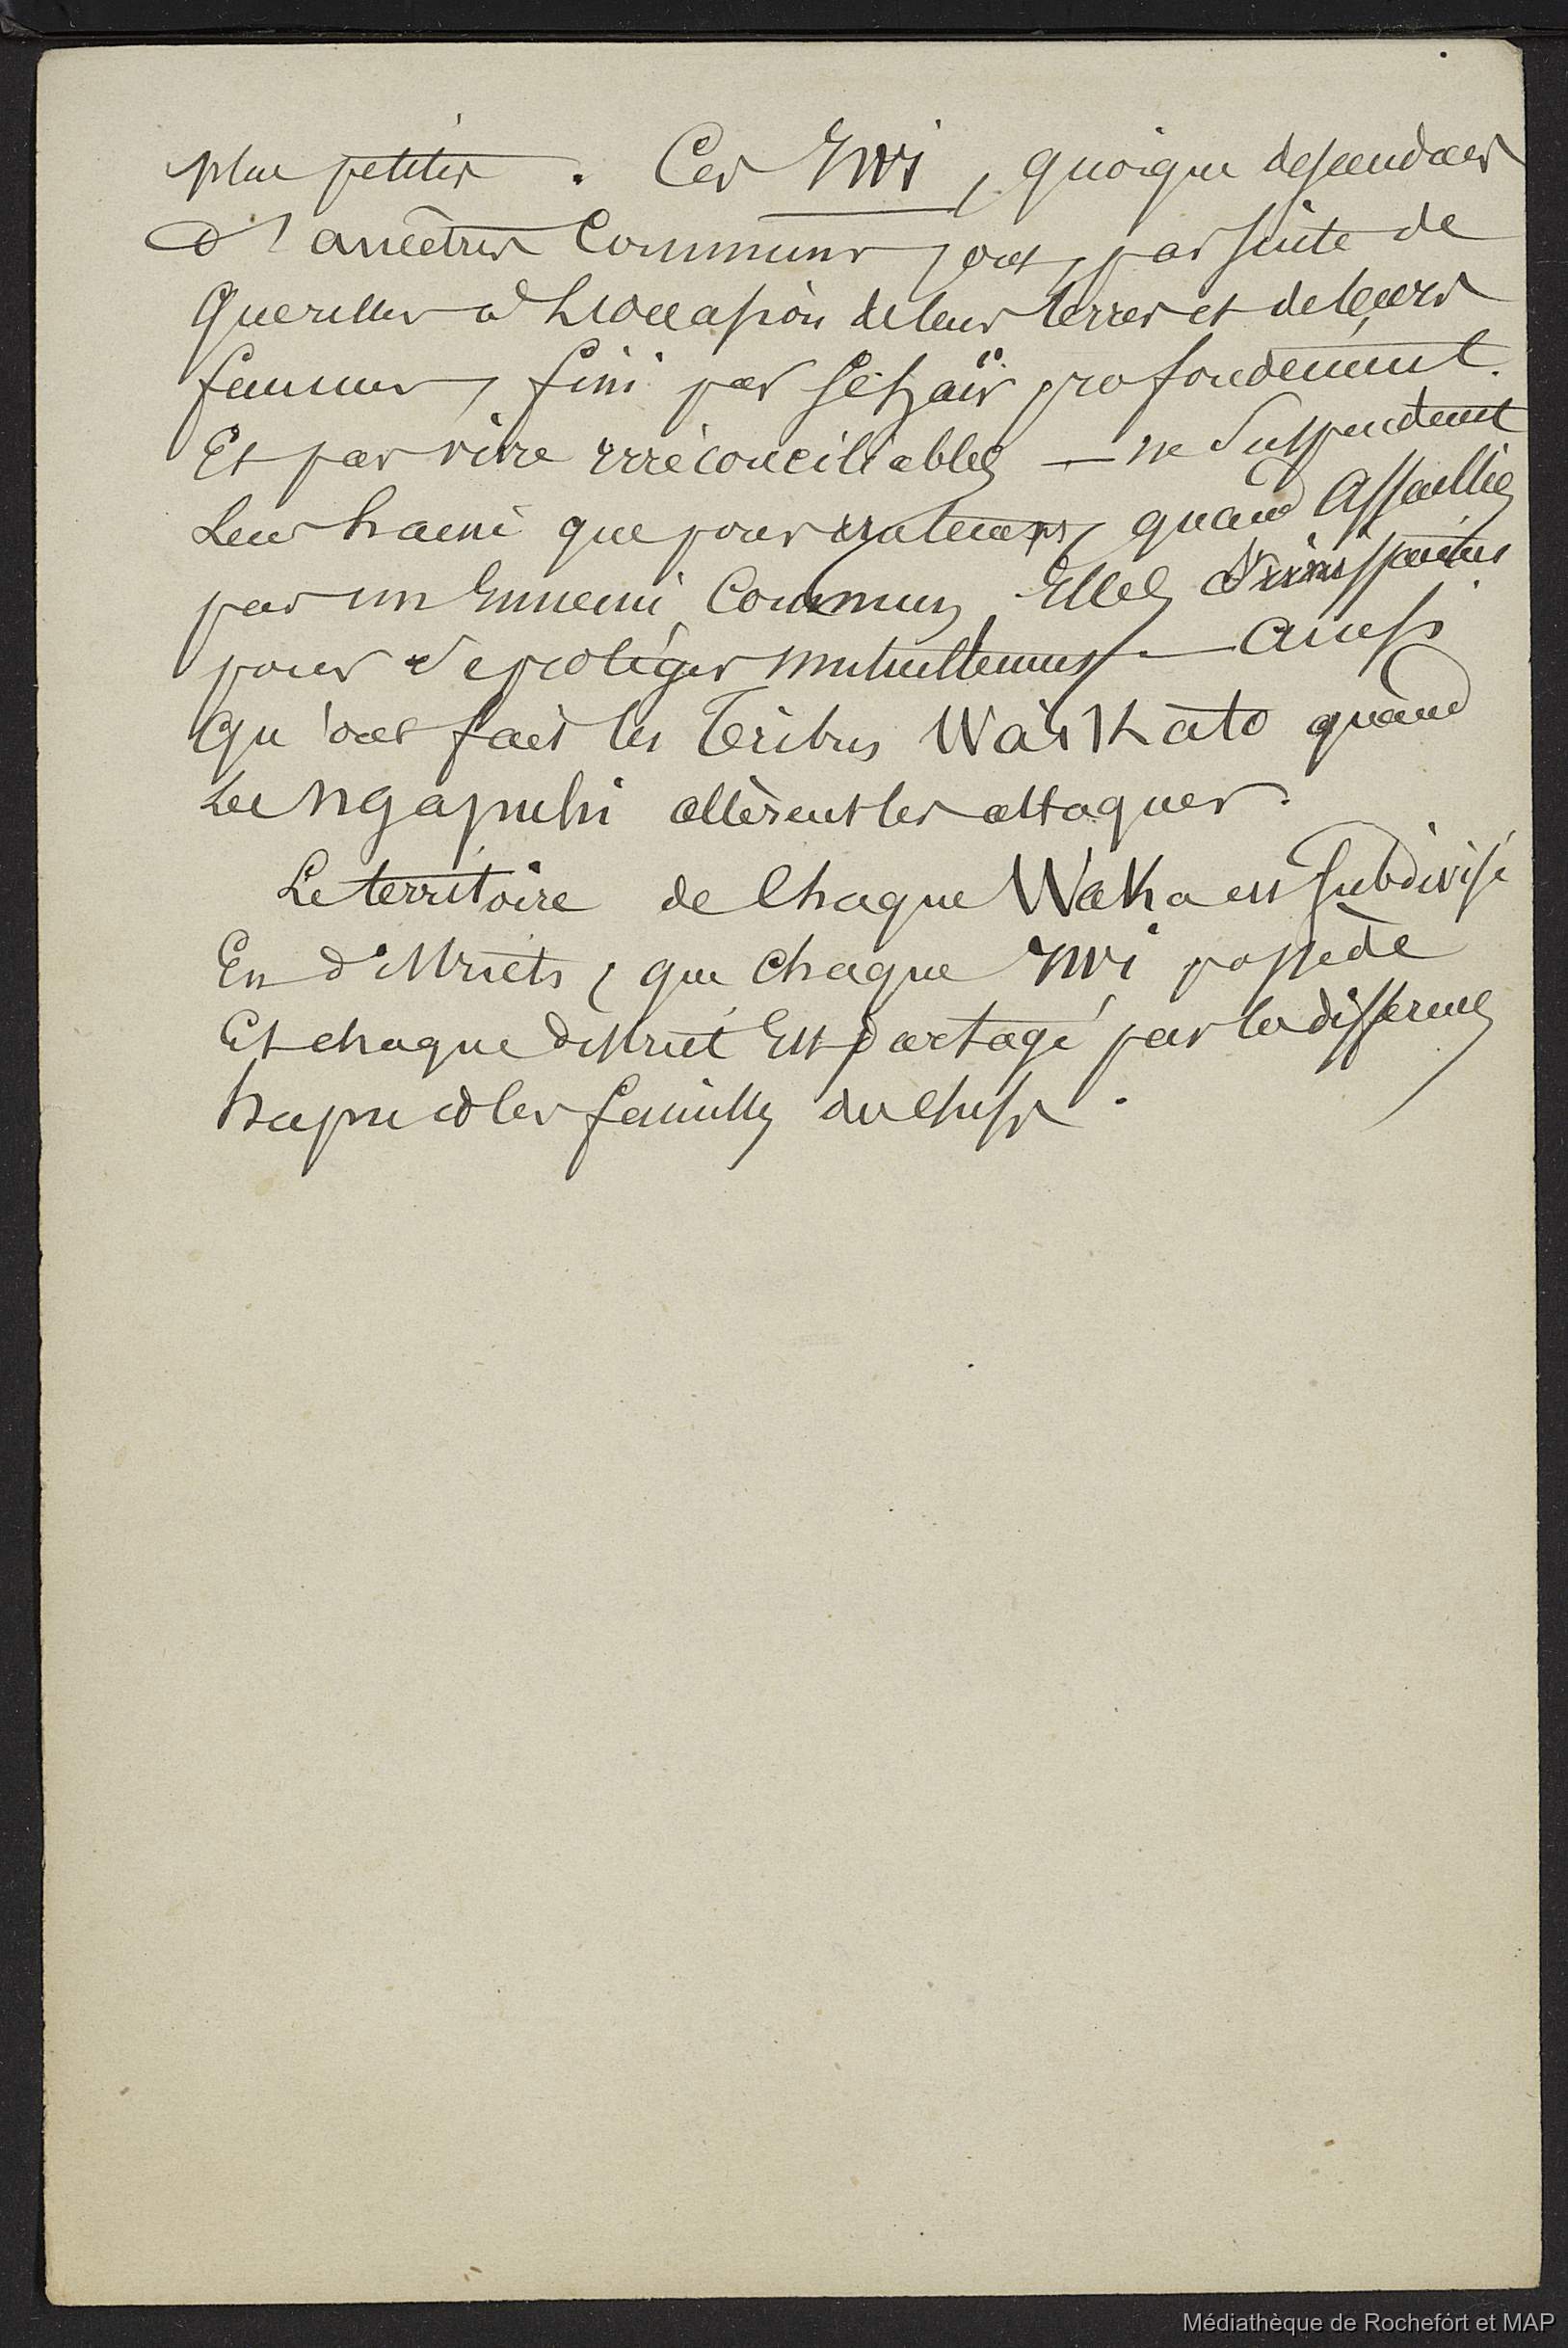 plus petites. Ces Iwi, quoique descendant
d'ancêtres communs, ont, par suite de
Querelles à L'occasion de leurs terres et de leurs
femmes, fini par se haïr profondément.
Et par vivre irréconciliables — ne Suspendent
Leur haine que pour un temps, quand Assaillies
par un Ennemi Commun Elles s'unissaient
pour se protéger mutuellement — ainsi
Qu'ont fait les Tribus Waikato quand
Les Ngapuhi allèrent les attaquer.
Le territoire de Chaque Waka est subdivisé
En districts, que chaque Iwi possède
Et chaque district Est partagé par les différents
hapu et les familles des chefs.
Médiathèque de Rochefort et MAP